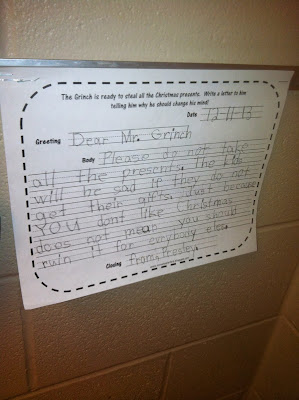 The Grinch is ready to steal all the Christmas presents. Write a letter to him
telling him why he should change his mind!
Date 12-11-13
Greeting Dear Mr. Grinch
Body Please do not take
all the presents. The kids
will be sad if they do not
get their gifts. Just because
YOU dont like Christmas
dcos not mean you should
ruin it for evrybody eles.
Closing From, Presley.